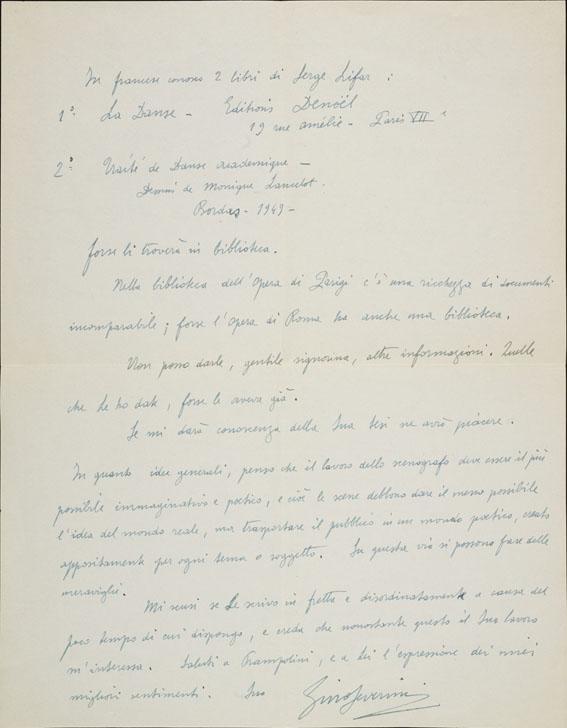 In francese conosco 2 libri di Serge Lifar :
1°. La Danse – Editions Denoël
19 rue amélie – Paris VII e
2° Traité de Danse academique –
Dessins de Monique Lancelot.
Bordas – 1949 –
forse li troverà in biblioteca.
Nella biblioteca dell'Opera di Parigi c'è una ricchezza di documenti
incomparabile ; forse l'Opera di Roma ha anche una biblioteca.
Non posso darle, gentile signorina, altre informazioni. Quelle
che Le ho date, forse le aveva già.
Se mi darà conoscenza della Sua tesi ne avrò piacere.
In quanto idee generali, penso che il lavoro dello scenografo deve essere il più
possibile immaginativo e poetico, e cioè le scene debbono dare il meno possibile
l'idea del mondo reale, ma trasportare il pubblico in un mondo poetico, creato
appositamente per ogni tema o soggetto. Su questa via si possono fare delle
meraviglie.
Mi scusi se Le scrivo in fretta e disordinatamente a causa del
poco tempo di cui dispongo, e creda che nonostante questo il Suo lavoro
m'interessa. Saluti a Prampolini, e a Lei l'espressione dei miei
migliori sentimenti. Suo Gino Severini